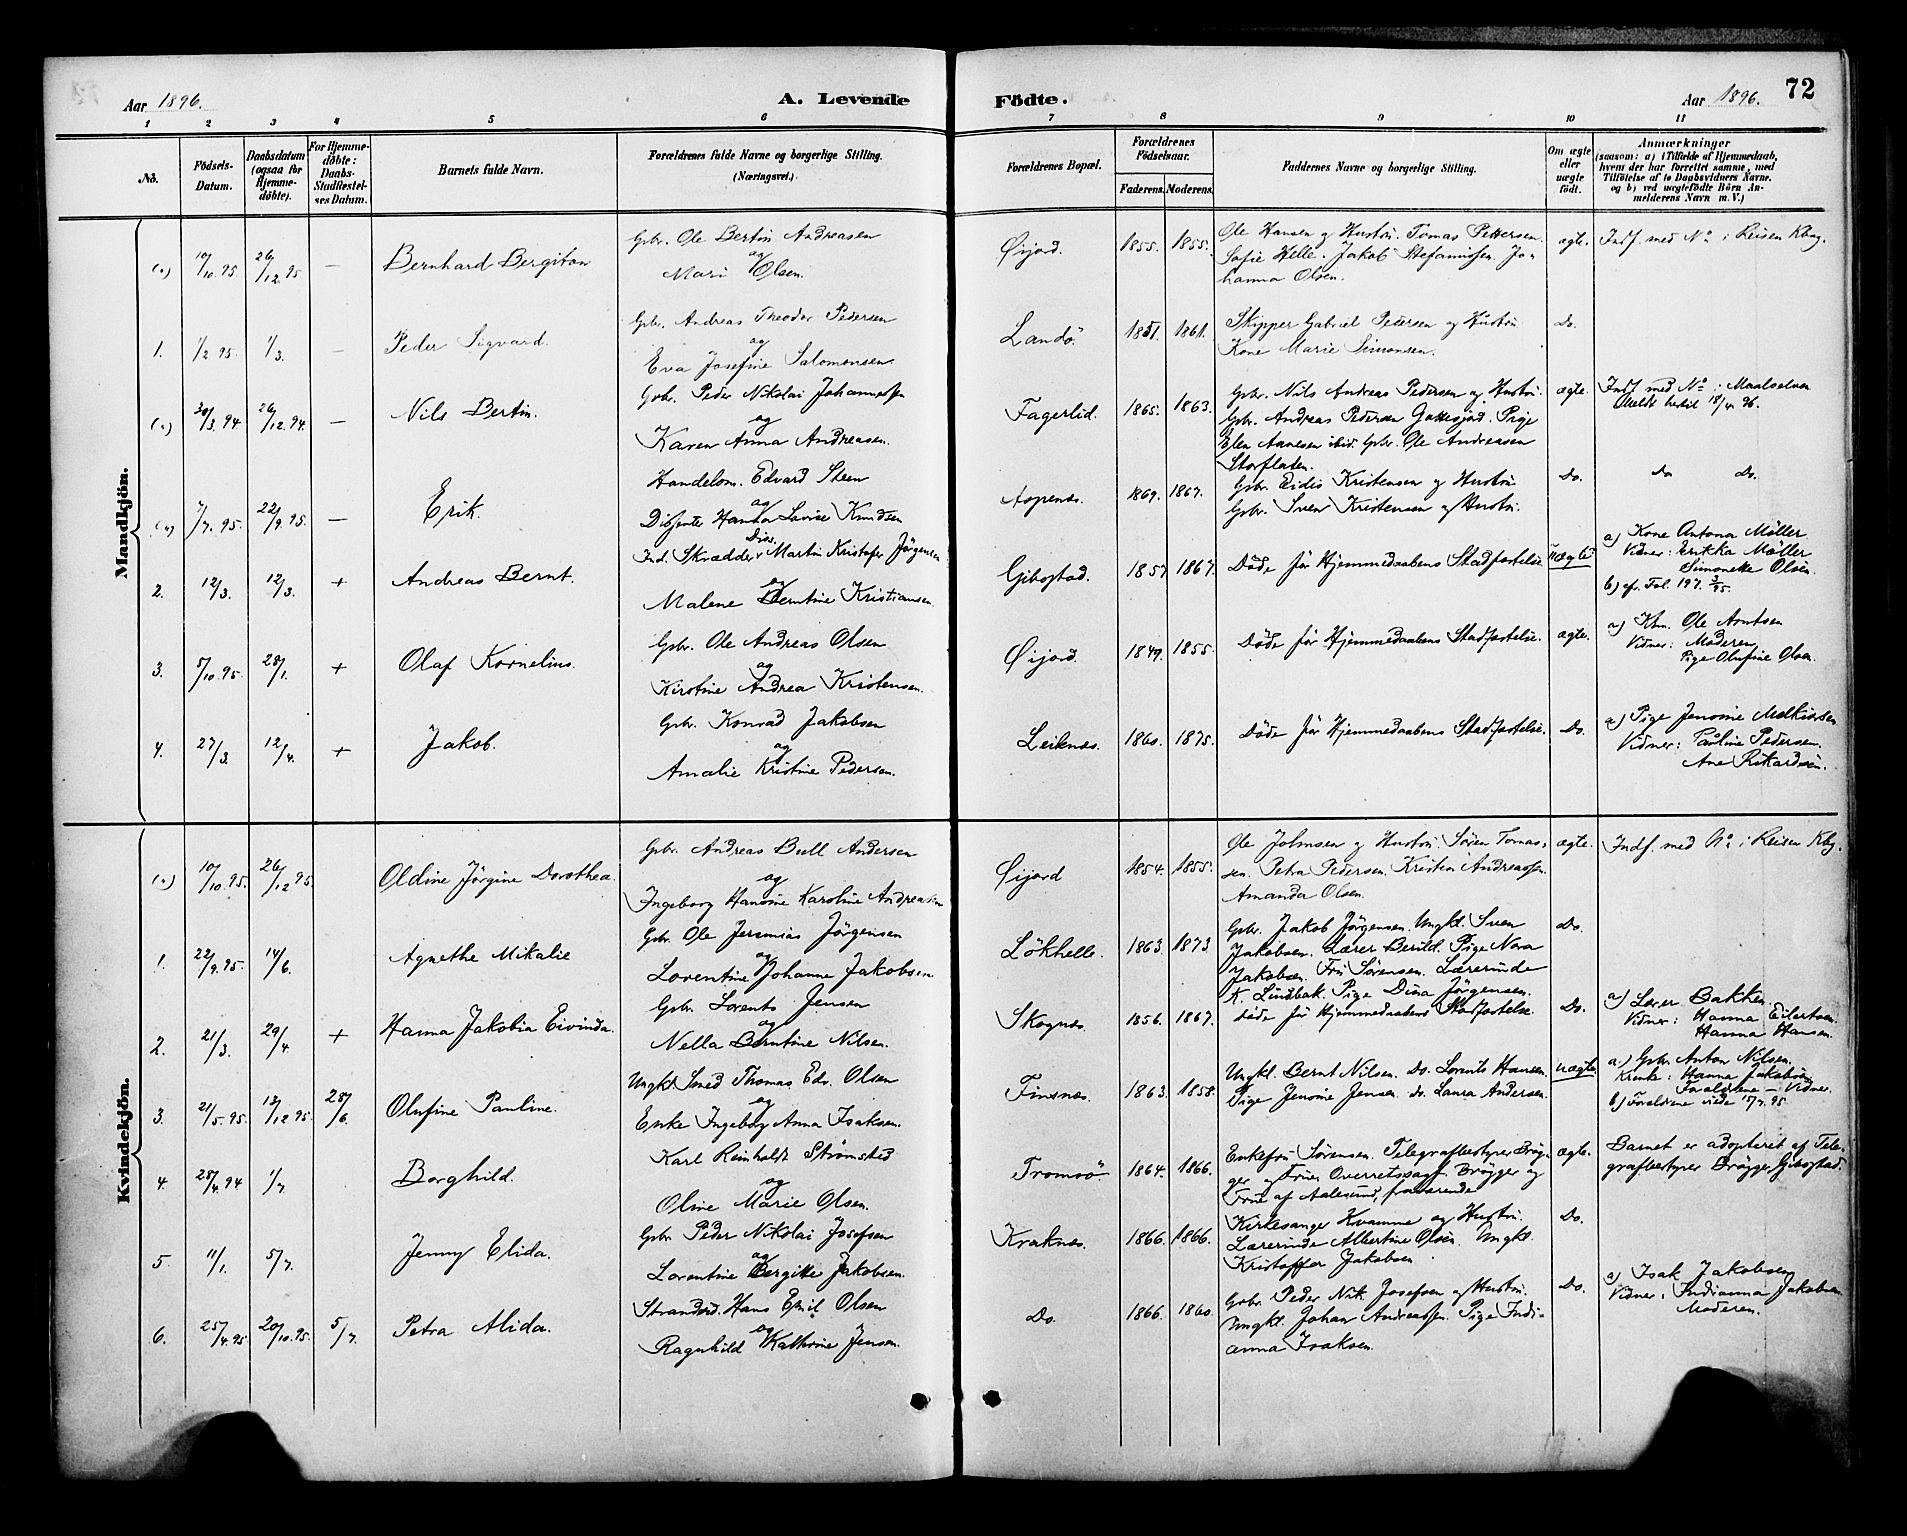 Aar 1896.
A. Levende Födte.
Aar 1896.
72
1 2 3 4 5 6 7 8 9 10 11
No.
Födsels-Datum.
Daabsdatum (ogsaa for Hjemmedöbte).
For Hjemmedöbte: Daabs-Stadfæstelses Datum.
Barnets fulde Navn.
Forældrenes fulde Navne og borgerlige Stilling.
(Næringsvei.)
Forældrenes Bopæl.
Forældrenes Födselsaar.
Faderens. Moderens.
Faddernes Navne og borgerlige Stilling.
Om ægte eller uægte födt.
Anmærkninger
(saasom: a) i Tilfælde af Hjemmedaab, hvem der har forrettet samme, med Tilföielse af to Daabsvidners Navne, og b) ved uægtefödte Börn Anmelderens Navn m. V.)
Mandkjön.
10/10.95. 26/12.95 — Bernhard Bergiton
Gbr. Ole Bertin Andreasen
og
Mari Olsen.
Öijord. 1855. 1855.
Ole Hansen og Hustru. Tomas Pettersen.
Sofie Helle. Jakob Stefanussen. Jo-
hanna Olsen.
ægte. Indf. med No i Reisen Kbog.
1. 1/2 95. 1/3. — Peder Sigvard.
Gbr. Andreas Theodor Pedersen
og
Eva Josefine Salomonsen.
Landö. 1851. 1861.
Skipper Gabriel Petersen og Hustru
Kone Marie Simonsen.
Do.
30/3.94 26/12.94. — Nils Bertin.
Gbr. Peder Nikolai Johannessen
og
Karen Anna Andreasen.
Fagerlid. 1865. 1863.
Gbr. Nils Andreas Pedersen og Hustru.
Gbr. Andreas Pedersen Pige
Elen ibid. Gbr. Ole Andreasen
Storflaten.
ægte. Indf. med No i Maalselven
18/4 96.
7/7.95. 22/9.95. — Erik.
Handelsm. Edvard Steen
og
Dissenter Hanna Lovise Knudsen
Diss.
Aspenes. 1869. 1867.
Gbr. Eidis Kristensen og Hustru
Gbr. Sven Kristensen og Hustru.
Do. Do Do.
2. 12/3. 12/3. + Andreas Bernt.
Ind. Skrædder Martin Kristofer Jörgensen
og
Malene Berntine Kristiansen.
Gibostad. 1857 1867.
Döde för Hjemmedaabens Stadfæstelse.
uægte
a) Kone Antona Möller
Vidner: Erikka Möller
Simonette Olsen.
b) cfr. Fol. 197. 3/95.
3. 5/10.95. 28/1. + Olaf Kornelius.
Gbr. Ole Andreas Olsen
og
Kirstine Andrea Kristensen.
Öijord. 1849. 1855.
Döde för Hjemmedaabens Stadfæstelse.
ægte.
a) Kbm. Ole Arntsen
Vidner: Moderen
Pige Olufine Olsen.
4. 27/3. 12/4. + Jakob.
Gbr. Konrad Jakobsen
og
Amalie Kristine Pedersen.
Leiknes. 1860. 1875.
Döde för Hjemmedaabens Stadfæstelse.
Do.
a) Pige Jensine Melkiorsen
Vidner: Pauline Pedersen.
Ane Rikardsen.
Kvindekjön.
10/10.95. 26/12 95. Oldine Jörgine Dorothea.
Gbr. Andreas Bull Andersen
og
Ingeborg Hansine Karoline Andreasen
Öijord 1854. 1855.
Ole Johnsen og Hustru. Sören Tomas-
sen. Petra Pedersen. Kristen Andreassen.
Amanda Olsen.
ægte. Indf. med No i Reisen Kbg.
1. 22/9.95. 14/6. Agnethe Mikalie
Gbr. Ole Jeremias Jörgensen
og
Lorentine Johanne Jakobsen
Lökhelle. 1863. 1873
Gbr. Jakob Jörgensen. Ungkl. Sven
Jakobsen. Lærer Berild. Pige Nora
Jakobsen. Fru Sörensen. Lærerinde
K. Lindbak. Pige Dina Jörgensen.
Do.
2. 21/3. 29/4. + Hanna Jakobia Eivinda.
Gbr. Lorents Jensen
og
Nella Berntine Nilsen.
Skognes. 1856. 1867.
Döde för Hjemmedaabens Stadfæstelse.
Do.
a) Lærer Bakken.
Vidner: Hanna Eilertsen
Hanna Hansen.
3. 21/5.95. 13/12.95. 28/6. Olufine Pauline.
Ungkl. Smed Thomas Edv. Olsen
og
Enke Ingeborg Anna Isaksen.
Finsnes. 1863. 1858.
Ungkl. Bernt Nilsen. Do. Lorents Hansen.
Pige Jensine Jensen. do. Laura Andersen.
uægte
a.) Gbr. Anton Nilsen.
Hanna Jakobsen
Forældrene — Vidner.
b) Forældrene viede 15/7.95.
4. 28/4.94 1/7. Borghild.
Karl Reinholdt Strömsted
og
Oline Marie Olsen.
Tromsö 1864. 1866.
Enkefru Sörensen. Telegrafbestyrer Brög-
ger og Frue, Overretssagf. Brögger og
Frue af Aalesund, fraværende
ægte.
Barnet er adopteret af Tele-
grafbestyrer Brögger, Gibostad.
5. 11/1. 5/7. Jenny Elida.
Gbr. Peder Nikolai Josefsen
og
Lorentine Bergitte Jakobsen.
Kraknes. 1866. 1866.
Kirkesanger Kvamme og Hustru.
Lærerinde Albertine Olsen. Ungkl.
Kristoffer Jakobsen.
Do.
6. 25/4.95 20/10.95. 5/7. Petra Alida.
Strandsd. Hans Emil Olsen
og
Ragnhild Kathrine Jensen.
Do. 1866. 1860.
Gbr. Peder Nik. Josefsen og Hustru.
Ungkl. Johan Andreassen. Pige Indi-
anna Isaksen.
Do.
a) Isak Jakobsen
Vidner: Indianna Jakobsen
Moderen.